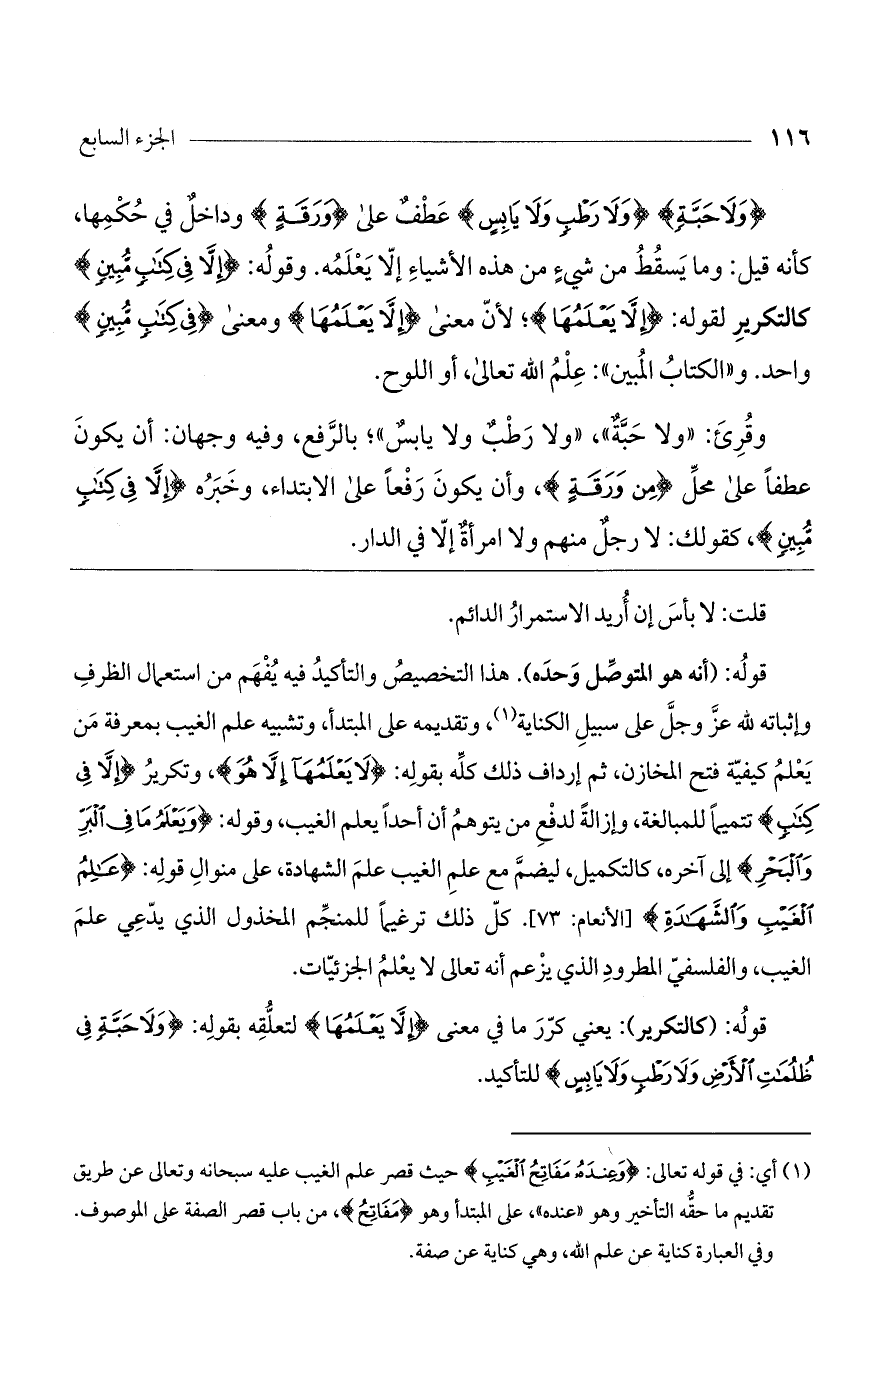 ١١٦ الجزء السابع
﴿وَلَا حَبَّةٍ﴾ ﴿وَلَا رَطْبٍ وَلَا يَابِسٍ﴾ عَطْفٌ علىٰ ﴿وَرَقَةٍ﴾ وداخلٌ في حُكْمِها،
كأنه قيل: وما يَسقُطُ من شيءٍ من هذه الأشياءِ إلّا يَعْلَمُه. وقولُه: ﴿إِلَّا فِي كِتَٰبٍ مُّبِينٍ﴾
كالتكريرِ لقوله: ﴿إِلَّا يَعْلَمُهَا﴾؛ لأنّ معنىٰ ﴿إِلَّا يَعْلَمُهَا﴾ ومعنىٰ ﴿فِي كِتَٰبٍ مُّبِينٍ﴾
واحد. و«الكتابُ المُبين»: عِلْمُ الله تعالىٰ، أو اللوح.
وقُرِئَ: «ولا حَبَّةٌ»، «ولا رَطْبٌ ولا يابسٌ»؛ بالرَّفع، وفيه وجهان: أن يكونَ
عطفاً علىٰ محلِّ ﴿مِن وَرَقَةٍ﴾، وأن يكونَ رَفْعاً علىٰ الابتداء، وخَبَرُه ﴿إِلَّا فِي كِتَٰبٍ
مُّبِينٍ﴾، كقولك: لا رجلٌ منهم ولا امرأةٌ إلّا في الدار.
قلت: لا بأسَ إن أُريد الاستمرارُ الدائم.
قولُه: (أنه هو المتوصِّل وَحدَه). هذا التخصيصُ والتأكيدُ فيه يُفْهَم من استعمال الظرفِ
وإثباته لله عزَّ وجلَّ على سبيلِ الكناية(١)، وتقديمه على المبتدأ، وتشبيه علم الغيب بمعرفة مَن
يَعْلمُ كيفيّة فتح المخازن، ثم إرداف ذلك كلِّه بقولِه: ﴿لَا يَعْلَمُهَآ إِلَّا هُوَ﴾، وتكريرُ ﴿إِلَّا فِي
كِتَٰبٍ﴾ تتميماً للمبالغة، وإزالةً لدفْعِ من يتوهمُ أن أحداً يعلم الغيب، وقوله: ﴿وَيَعْلَمُ مَا فِي ٱلْبَرِّ
وَٱلْبَحْرِ﴾ إلى آخره، كالتكميل، ليضمَّ مع علمِ الغيب علمَ الشهادة، على منوالِ قولِه: ﴿عَٰلِمُ
ٱلْغَيْبِ وَٱلشَّهَٰدَةِ﴾ [الأنعام: ٧٣]. كلّ ذلك ترغيماً للمنجِّم المخذول الذي يدّعِي علمَ
الغيب، والفلسفيّ المطرودِ الذي يزْعم أنه تعالى لا يعْلمُ الجزئيّات.
قولُه: (كالتكرير): يعني كرّرَ ما في معنى ﴿إِلَّا يَعْلَمُهَا﴾ لتعلُّقِه بقولِه: ﴿وَلَا حَبَّةٍ فِي
ظُلُمَٰتِ ٱلْأَرْضِ وَلَا رَطْبٍ وَلَا يَابِسٍ﴾ للتأكيد.
(١) أي: في قوله تعالى: ﴿وَعِندَهُۥ مَفَاتِحُ ٱلْغَيْبِ﴾ حيث قصر علم الغيب عليه سبحانه وتعالى عن طريق
تقديم ما حقُّه التأخير وهو «عنده»، على المبتدأ وهو ﴿مَفَاتِحُ﴾، من باب قصر الصفة على الموصوف.
وفي العبارة كناية عن علم الله، وهي كناية عن صفة.